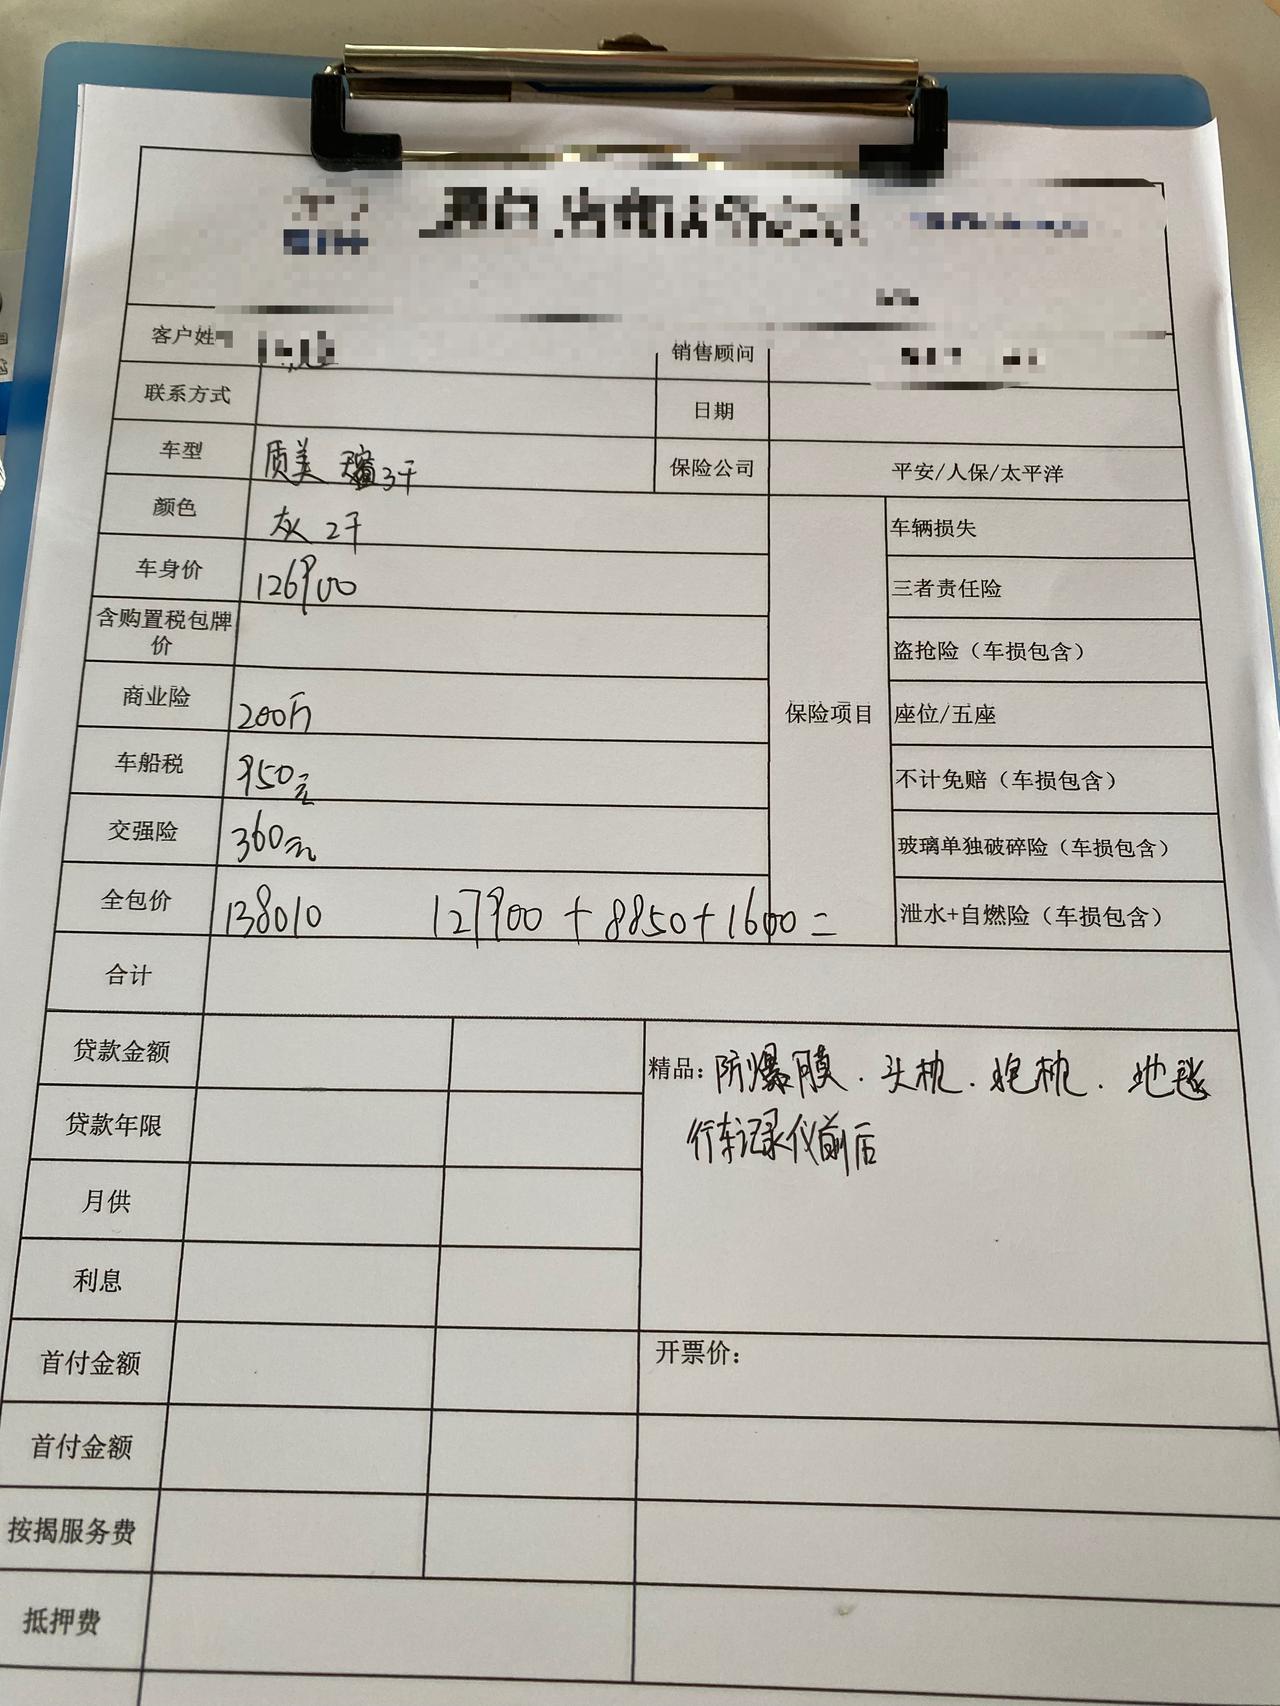 客户姓
销售顾问
联系方式
日期
车型 质美 3千
保险公司 平安/人保/太平洋
颜色 灰 2千
车身价 126900
含购置税包牌价
商业险 200万
车船税 950元
交强险 360元
全包价 138010 127900+8850+1600=
保险项目
车辆损失
三者责任险
盗抢险（车损包含）
座位/五座
不计免赔（车损包含）
玻璃单独破碎险（车损包含）
泄水+自燃险（车损包含）
合计
贷款金额
贷款年限
月供
利息
首付金额
首付金额
按揭服务费
抵押费
精品：防爆膜.头枕.抱枕.地毯
行车记录仪前后
开票价：